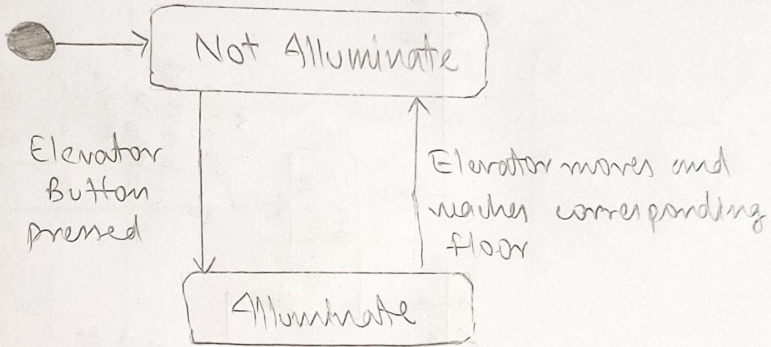 Not Illuminate
Elevator
Button
pressed
Elevator moves and
reaches corresponding
floor
Illuminate